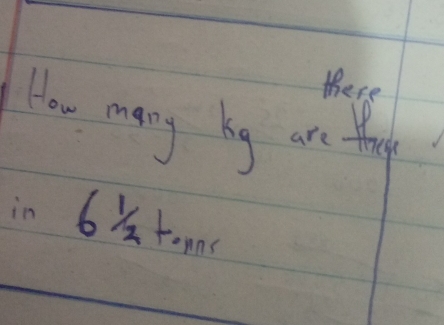 How many kg are there
in 6 ½ tonns